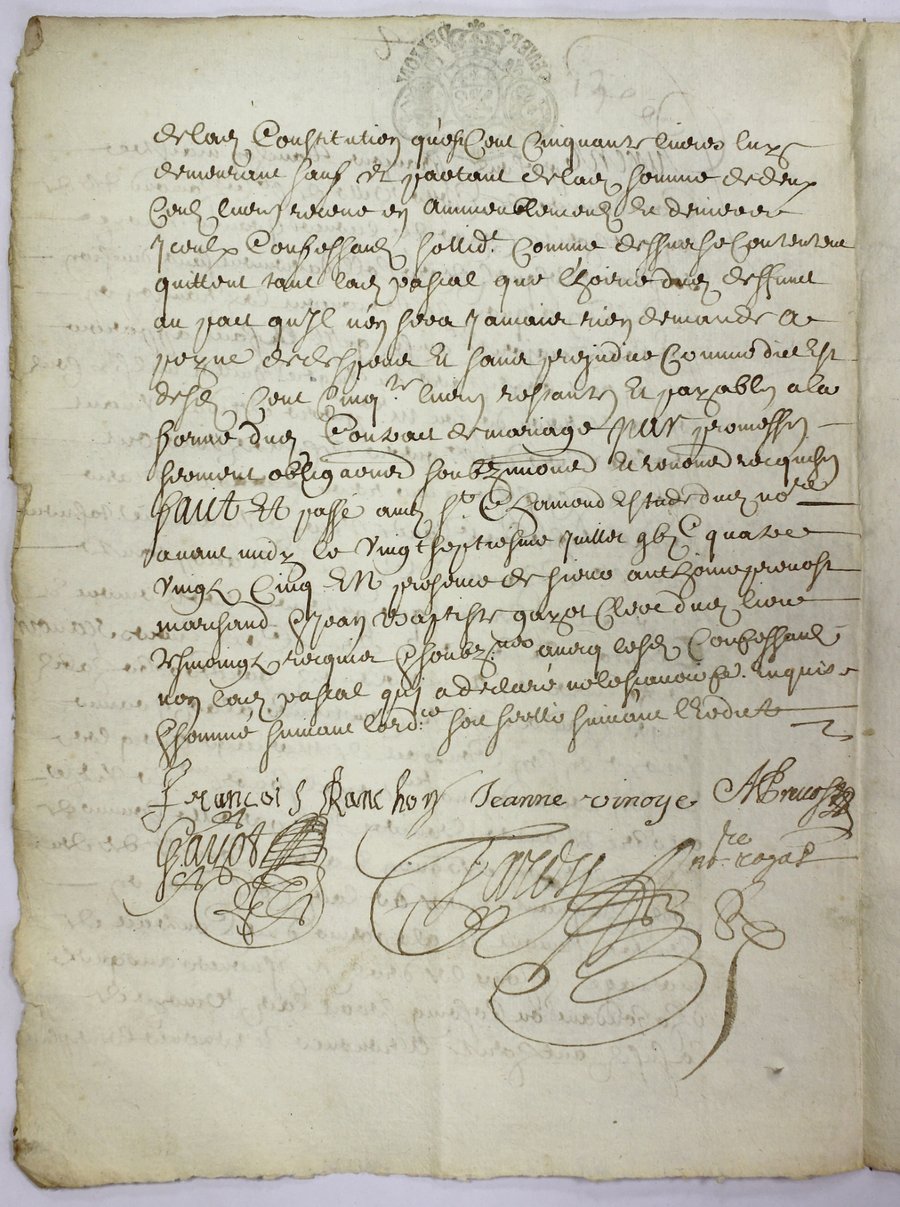 de lad Constitution quest Cent Cinquante livres luy
demeurant sauf Et partant de lad somme de deux
Cens livres receue en Ammeublement et deniers
Iceulx Confessans sollidt Comme dessus se Contentent
quittent tant lad pascal que l'hoirie dud deffunt
au pact qu'Il n'en sera Jamais rien demandé A
peyne de despens Et sans prejudice Comme dict Est
desd Cent Cinqte livres restantes Et payables a la
forme dud Contract de mariage par promesses
serment obligaons soubzmons Et renons requises
faict Et passé aud St Chamond Estude dud nore
avant midy le vingt septiesme Juillet gbjC quatre
vingt Cinq EN presence de sieur anthoine prevost
marchand & Jean Baptiste gayot Clerc dud lieu
tesmoingz requis & soubz.nes avecq lesd Confessans
non lad pascal qui a declaré ne scavoir fe. Enquise
& sommé suivant lord.ce soit scellé suivant l'Edict
françois Ranchon Jeanne vinoye APrevost
Gayot nre royal